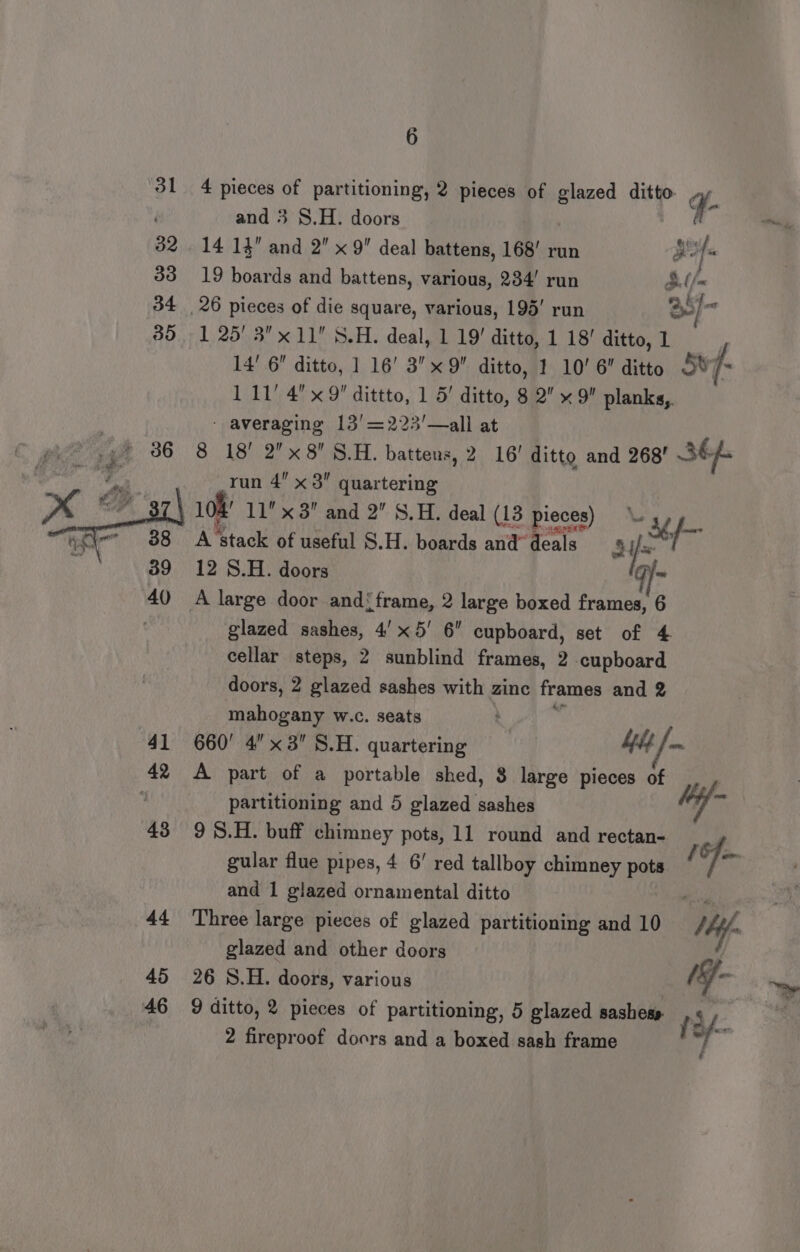 6
31 4 pieces of partitioning, 2 pieces of glazed ditto
and 3 S.H. doors
32 14 1¼" and 2" x 9" deal battens, 168' run
33 19 boards and battens, various, 234' run
34 26 pieces of die square, various, 195' run 25/-
35 1 25' 3" x 11" S.H. deal, 1 19' ditto, 1 18' ditto, 1
14' 6" ditto, 1 16' 3" x 9" ditto, 1 10' 6" ditto
1 11' 4" x 9" dittto, 1 5' ditto, 8 2" x 9" planks,
averaging 13'=223'—all at
36 8 18' 2" x 8" S.H. battens, 2 16' ditto and 268' 36/-
run 4" x 3" quartering
X 37 11" x 3" and 2" S.H. deal (13 pieces)
38 A stack of useful S.H. boards and deals
39 12 S.H. doors
40 A large door and frame, 2 large boxed frames, 6
glazed sashes, 4' x 5' 6" cupboard, set of 4
cellar steps, 2 sunblind frames, 2 cupboard
doors, 2 glazed sashes with zinc frames and 2
mahogany w.c. seats
41 660' 4" x 3" S.H. quartering 44/-
42 A part of a portable shed, 3 large pieces of
partitioning and 5 glazed sashes
43 9 S.H. buff chimney pots, 11 round and rectan-
gular flue pipes, 4 6' red tallboy chimney pots 16/-
and 1 glazed ornamental ditto
44 Three large pieces of glazed partitioning and 10
glazed and other doors
45 26 S.H. doors, various
46 9 ditto, 2 pieces of partitioning, 5 glazed sashes
2 fireproof doors and a boxed sash frame